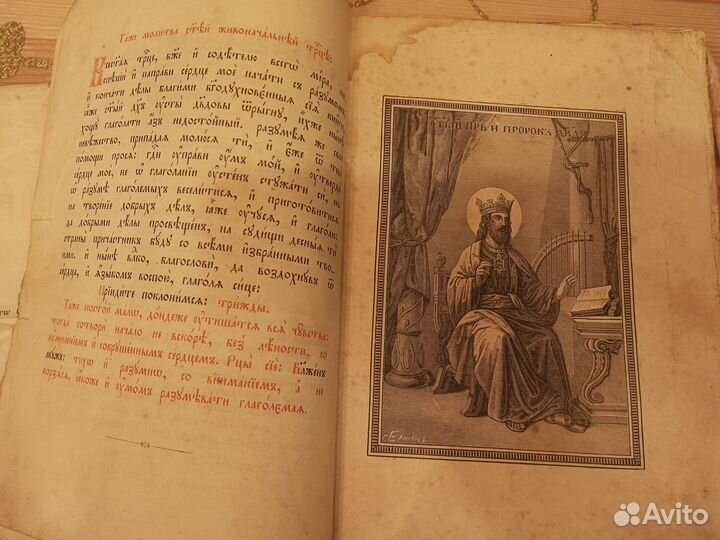 Таже молитва ст҃ѣй живоначальнѣй трⷪ҇цѣ:
Всест҃аѧ трⷪ҇це, бж҃е и҆ содѣ́телю всегѡ̀ мі́ра, по
спѣшѝ и҆ напра́ви се́рдце моѐ нача́ти съ ра́зумомъ
и҆ конча́ти дѣ́лы благи́ми бг҃одухнове́нныѧ сїѧ̑ кни̑ги
ꙗ҆̀же ст҃ы́й дх҃ъ ѹ҆сты̀ дв҃довы ѿры́гну, и҆́хже ны́нѣ
хощꙋ̀ глаго́лати а҆́зъ недосто́йный. разумѣ́ѧ же своѐ
невѣ́жество, припа́даѧ молю́сѧ ти̑, и҆ є҆́же ѿ тебє̀
по́мощи просѧ̀: гдⷭ҇и ѹ҆пра́ви ѹ҆́мъ мо́й, и҆ ѹ҆твердѝ
се́рдце моѐ, не ѡ҆ глаго́ланїи ѹ҆сте́нъ стꙋжа́ти сѝ, но
ѡ҆ ра́зумѣ глаго́лемыхъ весели́тисѧ, и҆ пригото́витисѧ
на творе́нїе до́брыхъ дѣ́лъ, ꙗ҆̀же ѹ҆чꙋ́сѧ, и҆ глаго́лю:
да до́брыми дѣ́лы просвѣще́нъ, на сꙋди́щи десны́ѧ ти̑
страны̀ прича́стникъ бꙋ́дꙋ со всѣ́ми и҆збра́нными тво
и́ми. и҆ ны́нѣ вл҃ко, благословѝ, да воздохнꙋ́въ ѿ
се́рдца, и҆ ꙗ҆зы́комъ воспою̀, глаго́лѧ си́це:
Прїиди́те поклони́мсѧ: три́жды.
Та́же посто́й ма́лѡ, до́ндеже ѹ҆тиша́тсѧ всѧ̑ чꙋ̑вства:
тогда̀ сотворѝ нача́ло не вско́рѣ, без̾ лѣ́ности, со
ѹ҆миле́нїемъ и҆ сокрꙋше́ннымъ се́рдцемъ. Рцы̀ сїѐ: Бл҃же́нъ
мꙋ́жъ: ти́хѡ и҆ разꙋ́мнѡ, со внима́нїемъ, а҆ не
борзѧ́сѧ, ꙗ҆́коже и҆ ѹ҆мо́мъ разꙋмѣва́ти глаго́лемаѧ.
СТ҃ЫЙ ПРⷪ҇Ръ И ПРОРОКЪ ДАВИДЪ
Avito